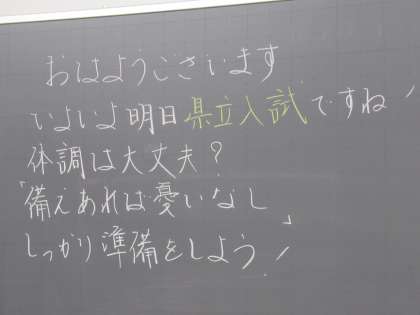 おはようございます
いよいよ明日県立入試ですね！
体調は大丈夫？
「備えあれば憂いなし」
しっかり準備をしよう！